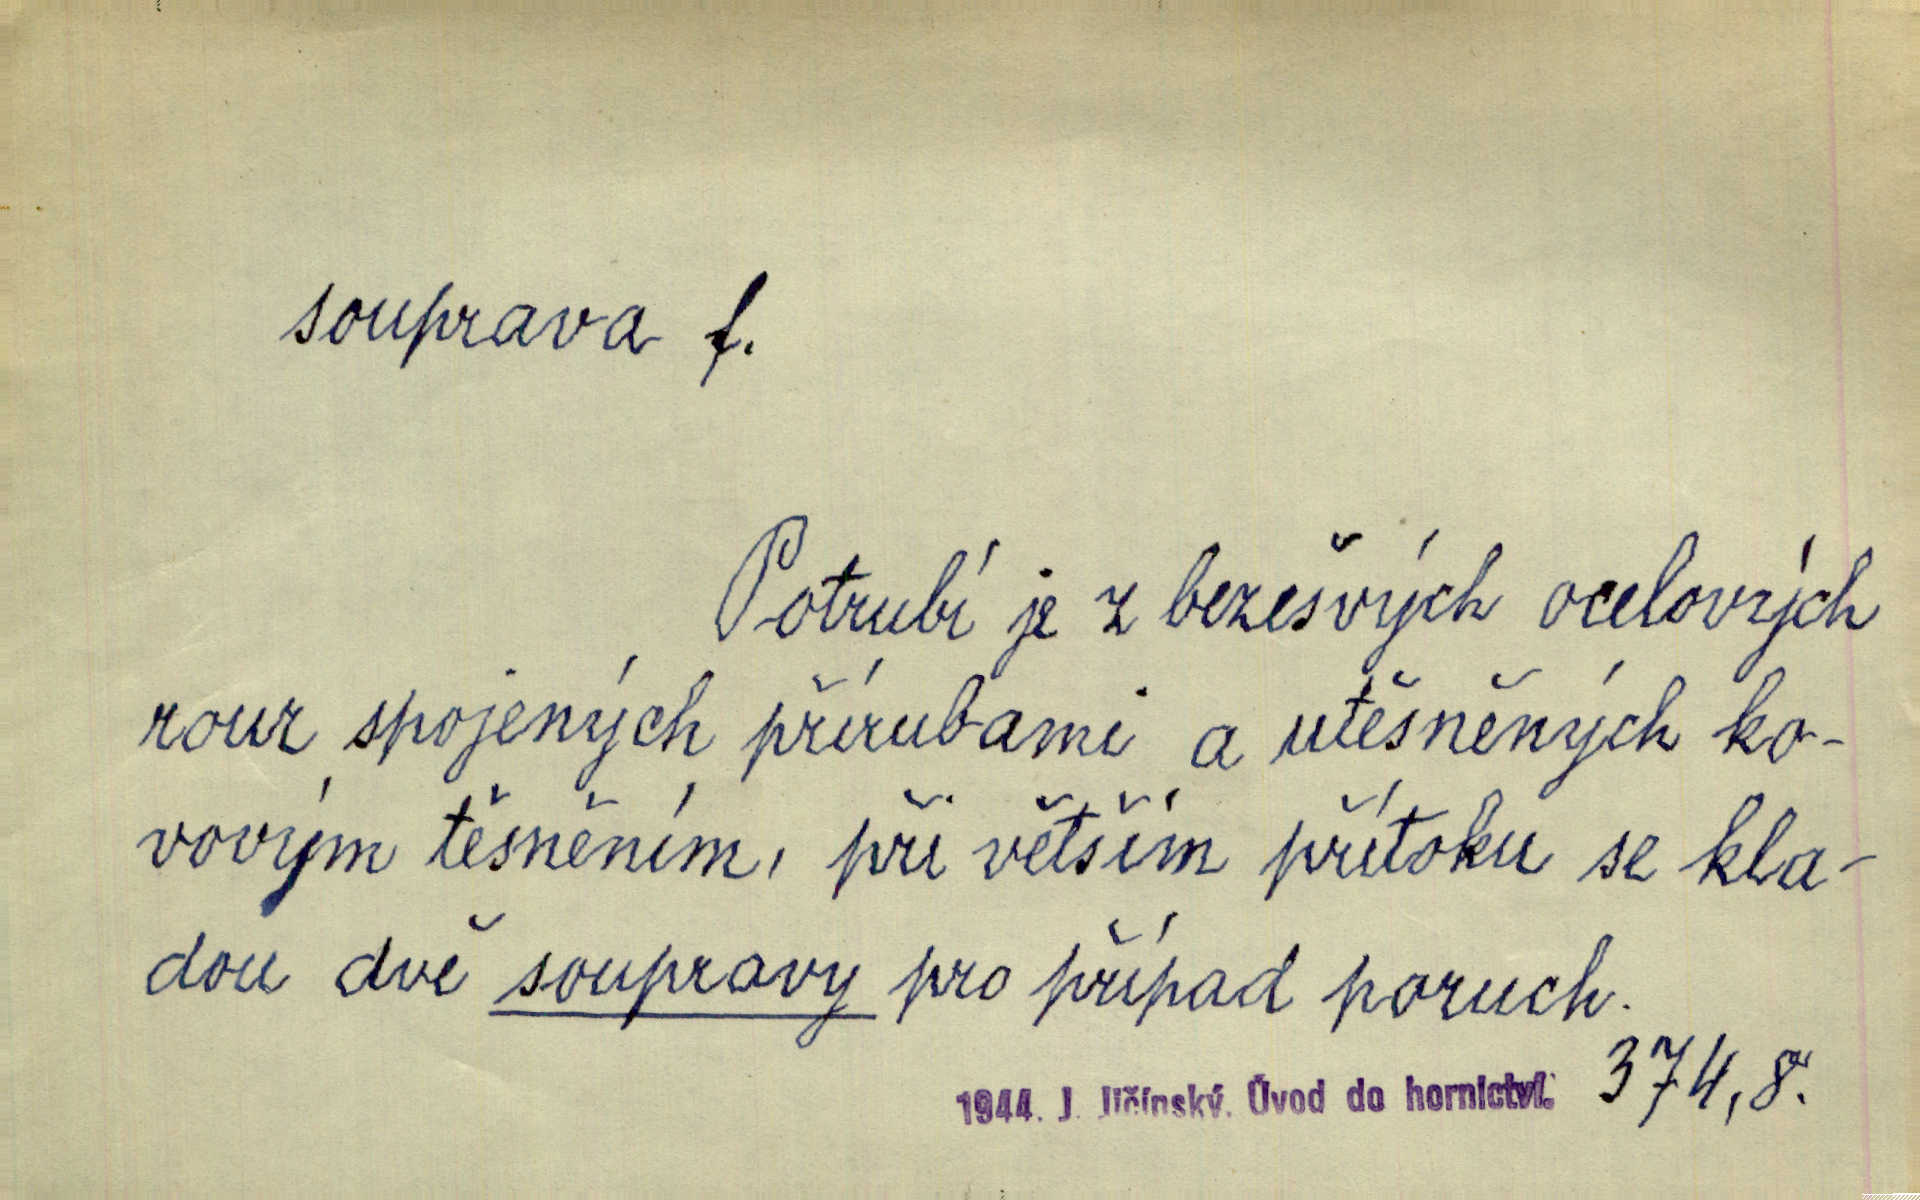 souprava f.
Potrubí je z bezešvých ocelových
rour spojených přírubami a utěsněných ko-
vovým těsněním, při větším přítoku se kla-
dou dvě soupravy pro případ poruch.
1944. J. Jičínský. Úvod do hornictví. 374,8.